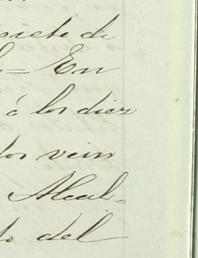 siete de
= En
á los diez
los vein
Alcal-
to del